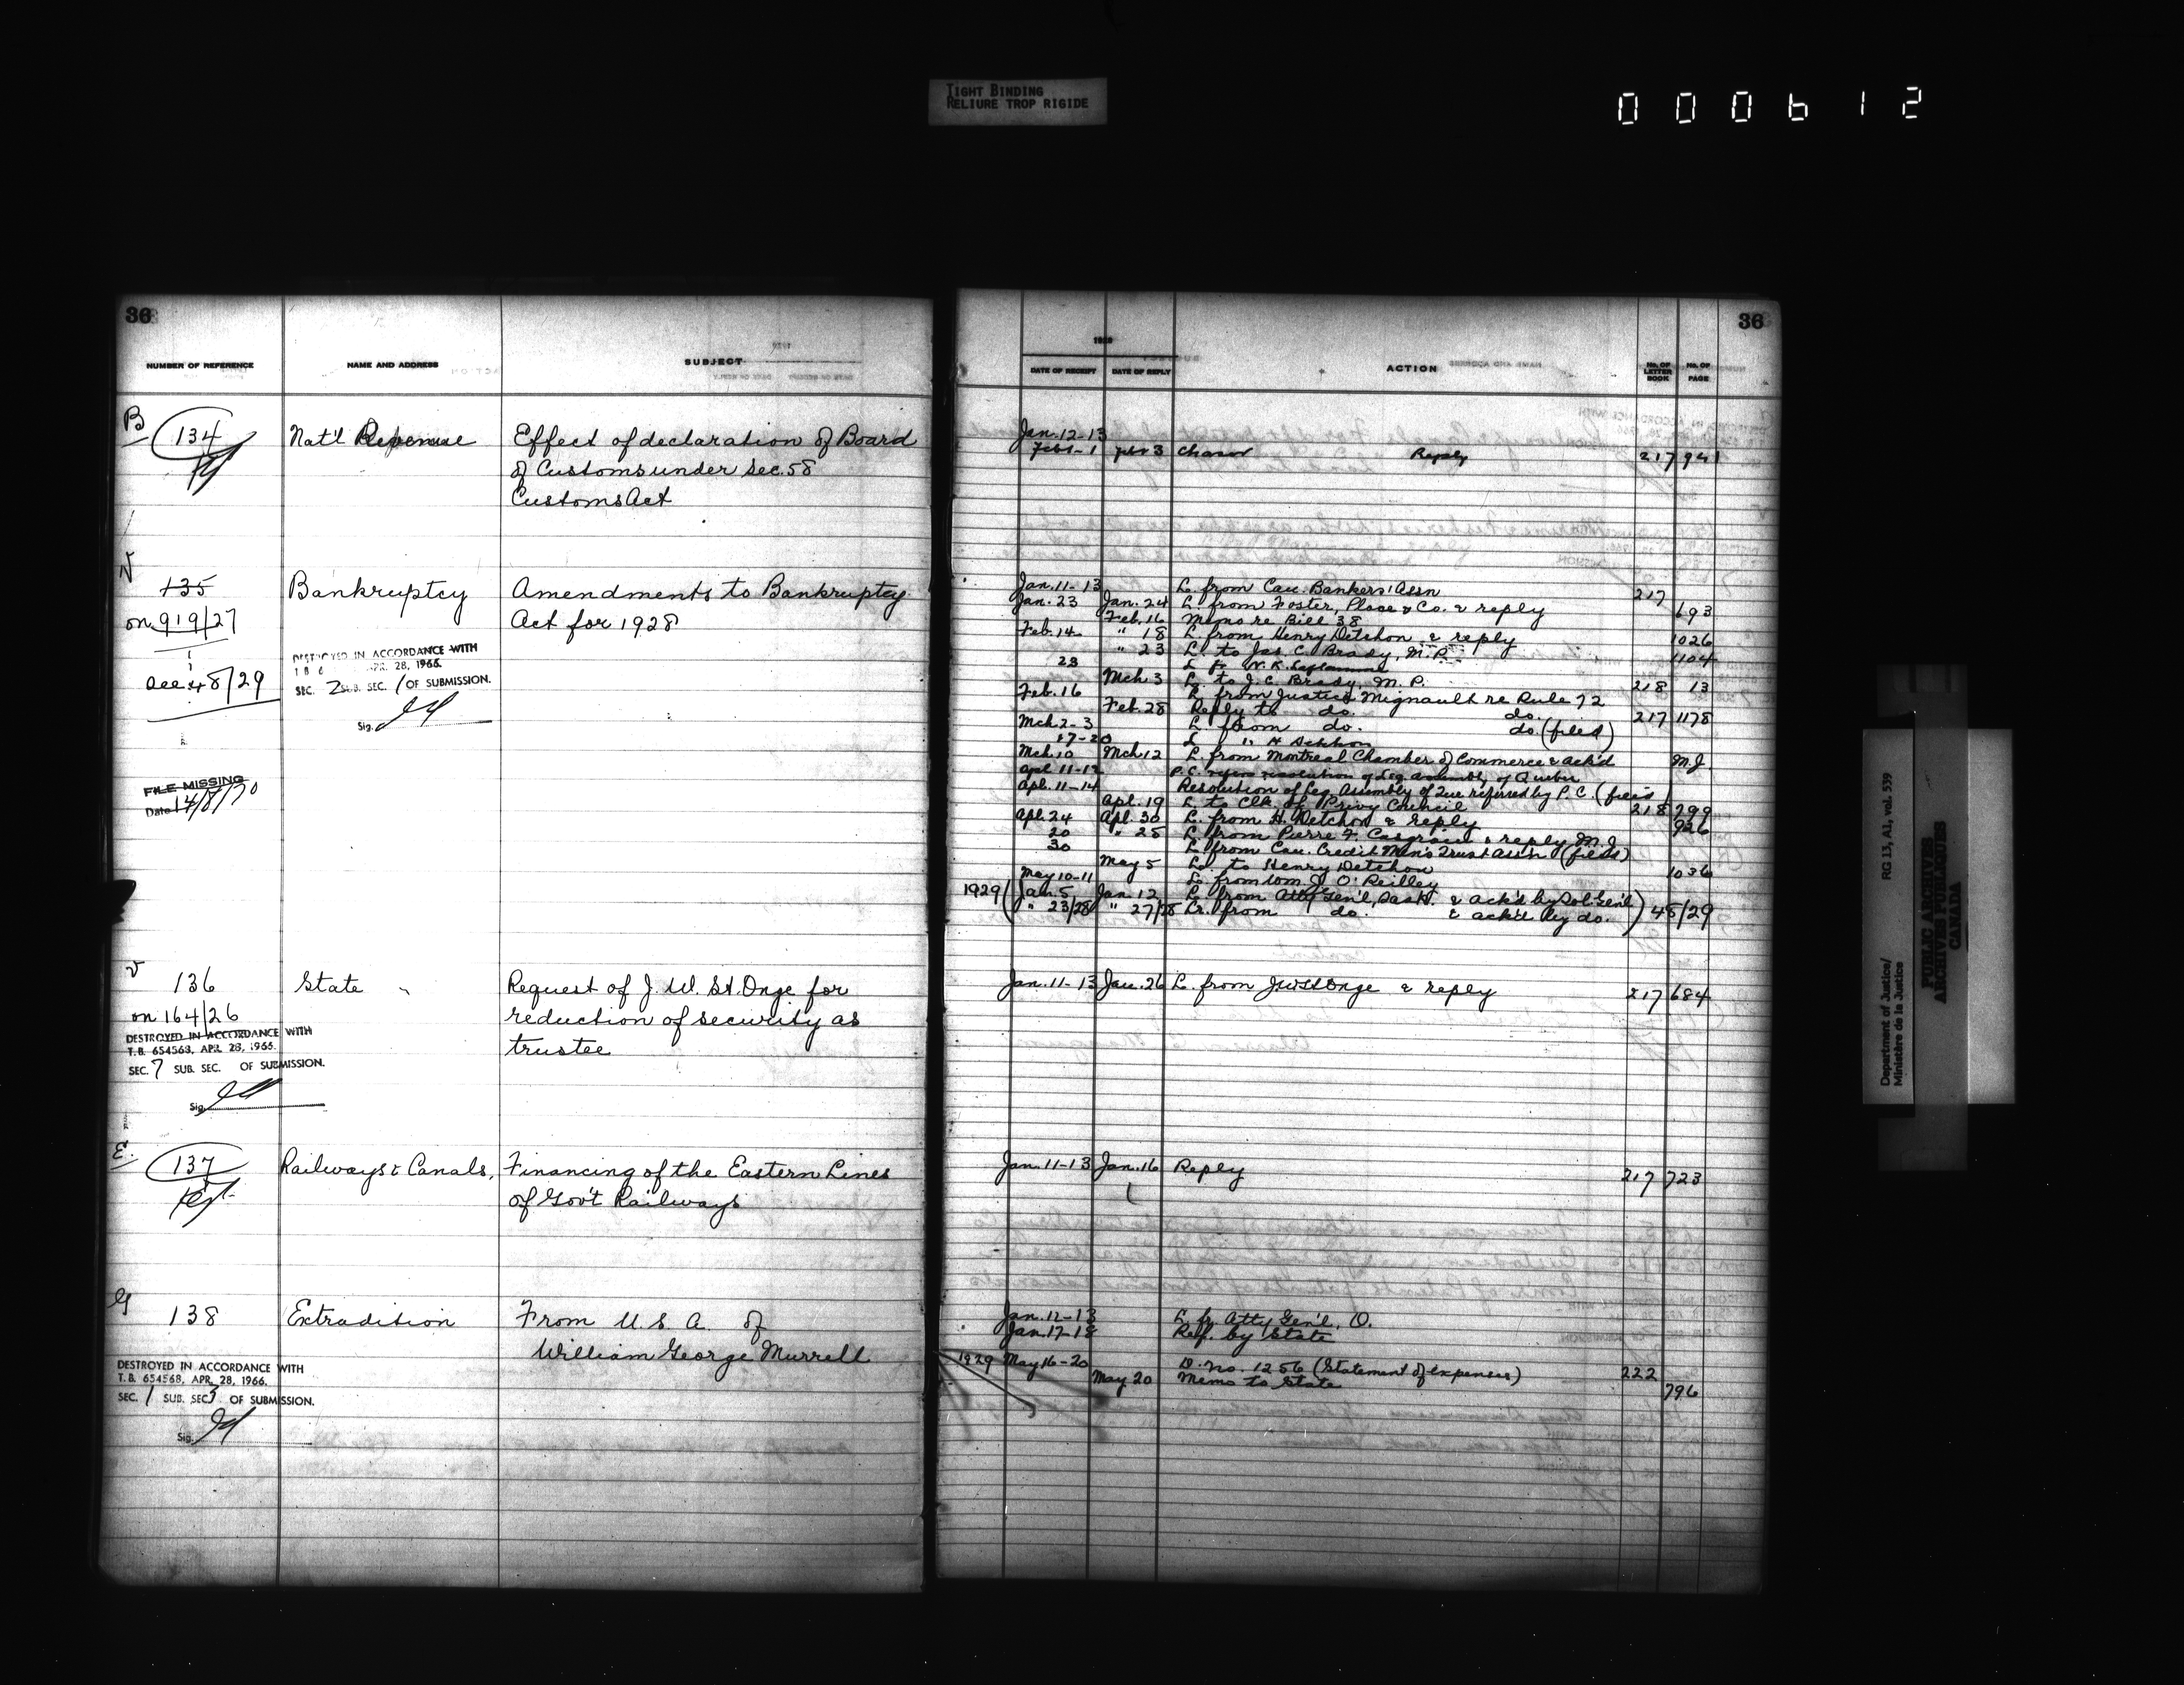 TIGHT BINDING
RELIURE TROP RIGIDE
000612
36
NUMBER OF REFERENCE NAME AND ADDRESS SUBJECT
B
134 Nat'l Revenue Effect of declaration of Board
of Customs under Sec. 58
Customs Act
135 Bankruptcy Amendments to Bankruptcy
on 919/27 Act for 1928
DESTROYED IN ACCORDANCE WITH
APR. 28, 1966.
See 48/29 SEC. 2 SUB. SEC. 1 OF SUBMISSION.
Sig.
FILE MISSING
Date 14/8/70
136 State Request of J. W. St. Onge for
on 164/26 reduction of security as
trustee
DESTROYED IN ACCORDANCE WITH
T.B. 654568, APR. 28, 1966.
SEC. 7 SUB. SEC. OF SUBMISSION.
Sig.
E.
137 Railways & Canals, Financing of the Eastern Lines
of Gov't Railways
G
138 Extradition From U. S. A. of
William George Murrell
DESTROYED IN ACCORDANCE WITH
T.B. 654568, APR. 28, 1966.
SEC. 1 SUB. SEC 3 OF SUBMISSION.
Sig.
36
DATE OF RECEIPT DATE OF REPLY ACTION No. OF LETTER BOOK No. OF PAGE
Jan. 12-13
Feb 1 Reply 217 941
Jan. 11-13 L. from Can. Bankers' Assn 217
Jan. 23 Jan. 24 L. from Foster, Place & Co. & reply 693
Feb. 16 Memo re Bill 38
Feb. 14 " 18 L. from Henry Detchon & reply 1026
" 23 L. to Jas. C. Brady, M. P. 1104
23 L. fr. N. K. Laflamme
Mch 3 L. to J. C. Brady, M. P. 218 13
Feb. 16 L. from Justice Mignault re Rule 72
Feb. 28 Reply to do. do. 217 1178
Mch. 2-3 L. from do. do. (filed)
17-20 L. " H Detchon
Mch. 10 Mch 12 L. from Montreal Chamber of Commerce & ack'd M.J.
Apl. 11-12 P.C. refers resolution of Leg. Assembly of Quebec
Apl. 11-14 Resolution of Leg. Assembly of Que referred by P.C. (filed)
Apl. 19 L. to Clk. of Privy Council 218 799
Apl. 24 Apl. 30 L. from H. Detchon & reply 926
20 " 25 L. from Pierre F. Casgrain & reply M.J.
30 L. from Can. Credit Men's Trust Assn (filed)
May 5 L. to Henry Detchon 1036
May 10-11 L. from Wm J. O'Reilley
1929 ( Jan. 5 Jan. 12 L. from Atty Gen'l, Sask. & ack'd by Sol. Gen'l
" 23/28 " 27/28 Lr. from do. & ack'd by do. ) 48/29
Jan. 11-13 Jan. 26 L. from J.W. St Onge & reply 217 684
Jan. 11-13 Jan. 16 Reply 217 723
Jan. 12-13 L. fr. Atty Gen'l, O.
Jan. 17-18 Ref. by State
1929 May 16-20 D. no. 1256 (Statement of expenses) 222
May 20 Memo to State 796
RG 13, A1, vol. 539
Department of Justice/
Ministère de la Justice
PUBLIC ARCHIVES
ARCHIVES PUBLIQUES
CANADA